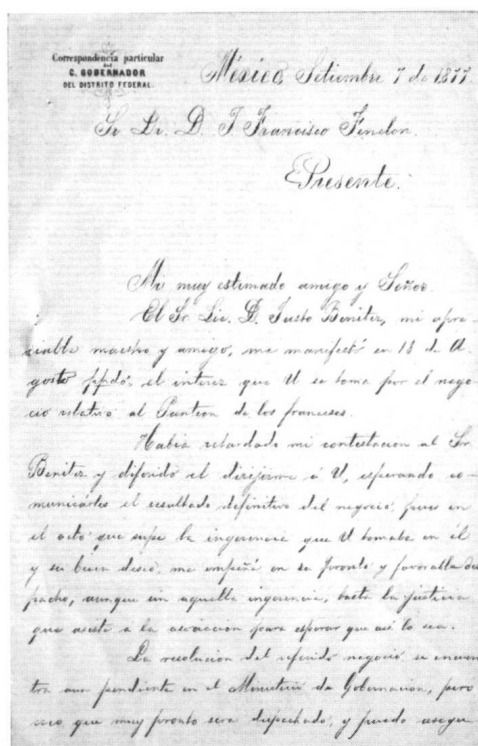 Correspondencia particular
del
C. GOBERNADOR
DEL DISTRITO FEDERAL.
México, Setiembre 7 de 1877.
Sr. Dr. D. J. Francisco Fenelon.
Presente.
Mi muy estimado amigo y Señor.
El Sr. Lic. D. Justo Benitez, mi apre-
ciable maestro y amigo, me manifestó en 13 de A-
gosto ppdo. el interes que U se toma por el nego-
cio relativo al Panteon de los franceses.
Habia retardado mi contestacion al Sr.
Benitez y diferido el dirijirme á U, esperando co-
municarles el resultado definitivo del negocio, pues en
el acto que supe la ingerencia que U tomaba en él
y su buen deseo, me empeñé en su pronto y favorable des
pacho, aunque sin aquella ingerencia, basta la justicia
que asiste a la asociacion para esperar que asi lo sea.
La resolucion del referido negocio se encuen
tra aun pendiente en el Ministerio de Gobernacion, pero
creo que muy pronto sera despachado, y puedo asegu-